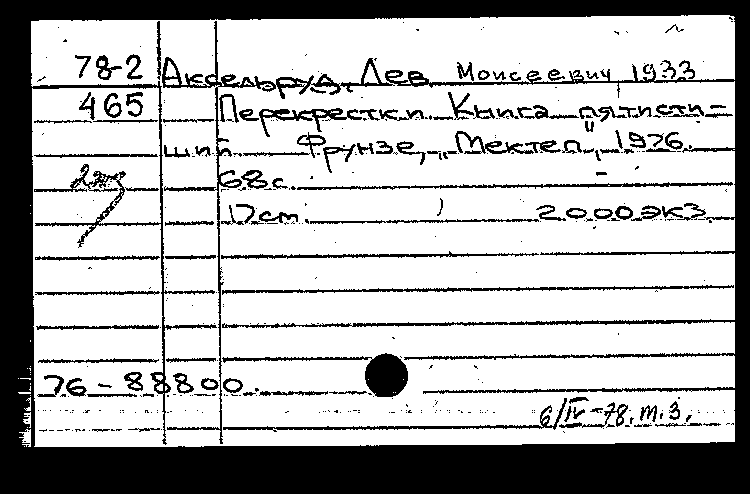 78-2 Аксельруд, Лев Моисеевич 1933
465 Перекрестки. Книга пятисти-
ший. Фрунзе, „Мектеп", 1976.
2экз 68 с.
17см. 2000экз
76-88800.
6/IV-78. т.з.